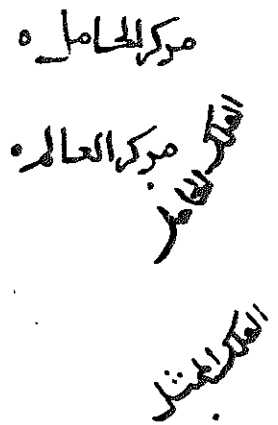 مركز الحامل
مركز العالم
الفلك الحامل
الفلك الممثل